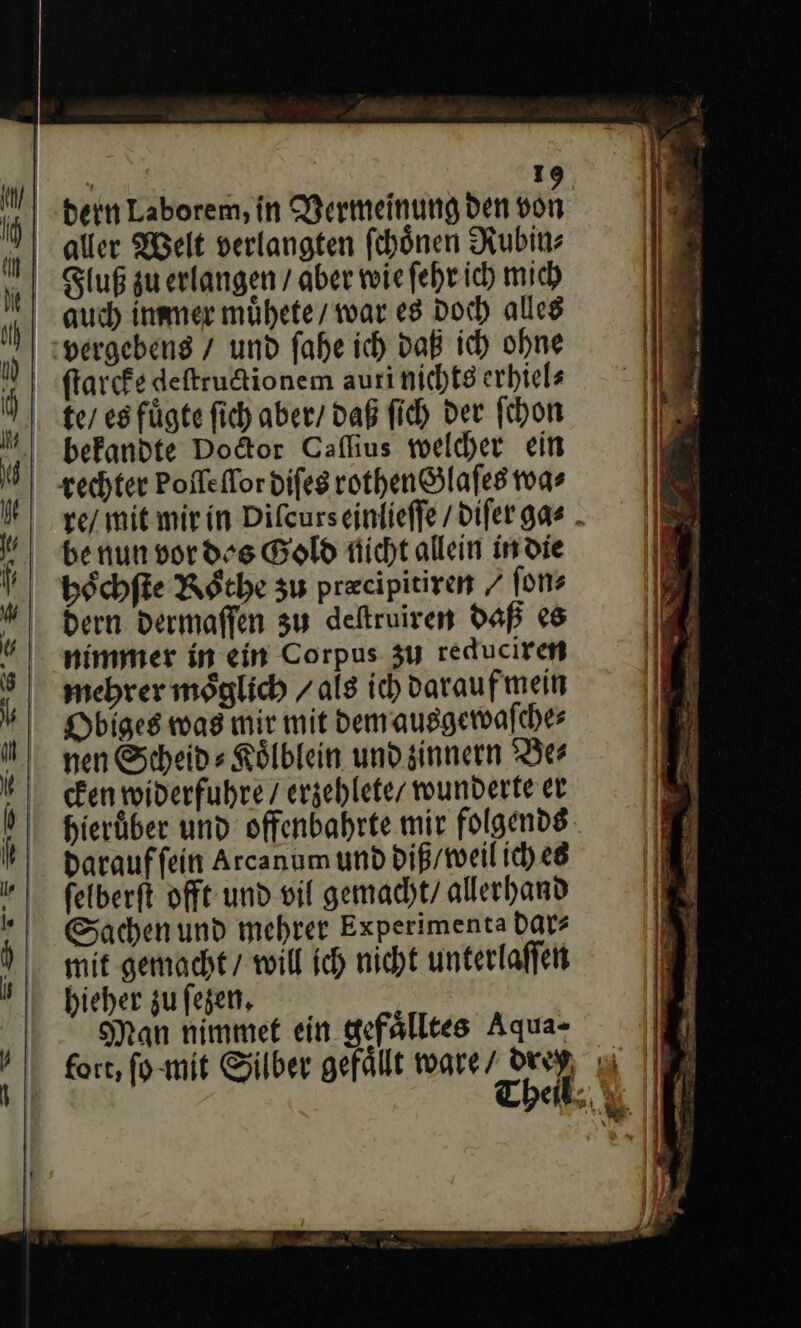 19
dern Laborem, in Vermeinung den von
aller Welt verlangten ſchoͤnen Rubin⸗
Fluß zu erlangen / aber wie ſehr ich mich
auch immer muͤhete / war es doch alles
vergebens / und ſahe ich daß ich ohne
ſtarcke deſtructionem auri nichts erhiel⸗
te / es fuͤgte ſich aber / daß ſich der ſchon
bekandte Doctor Caſſius welcher ein
rechter Poſſeſſor diſes rothen Glaſes wa⸗
re / mit mir in Diſcurs einlieſſe / diſer ga⸗
be nun vor des Gold nicht allein in die
hoͤchſte Roͤthe zu præcipitiren / ſon⸗
dern dermaſſen zu deſtruiren daß es
nimmer in ein Corpus zu reduciren
mehrer moͤglich / als ich darauf mein
Obiges was mir mit dem ausgewaſche⸗
nen Scheid⸗Koͤlblein und zinnern Be⸗
cken widerfuhre / erzehlete / wunderte er
hieruͤber und offenbahrte mir folgends
darauf ſein Arcanum und diß / weil ich es
ſelberſt offt und vil gemacht / allerhand
Sachen und mehrer Experimenta dar⸗
mit gemacht / will ich nicht unterlaſſen
hieher zu ſezen.
Man nimmet ein gefaͤlltes Aqua-
fort, ſo mit Silber gefaͤllt ware / drey
Theil